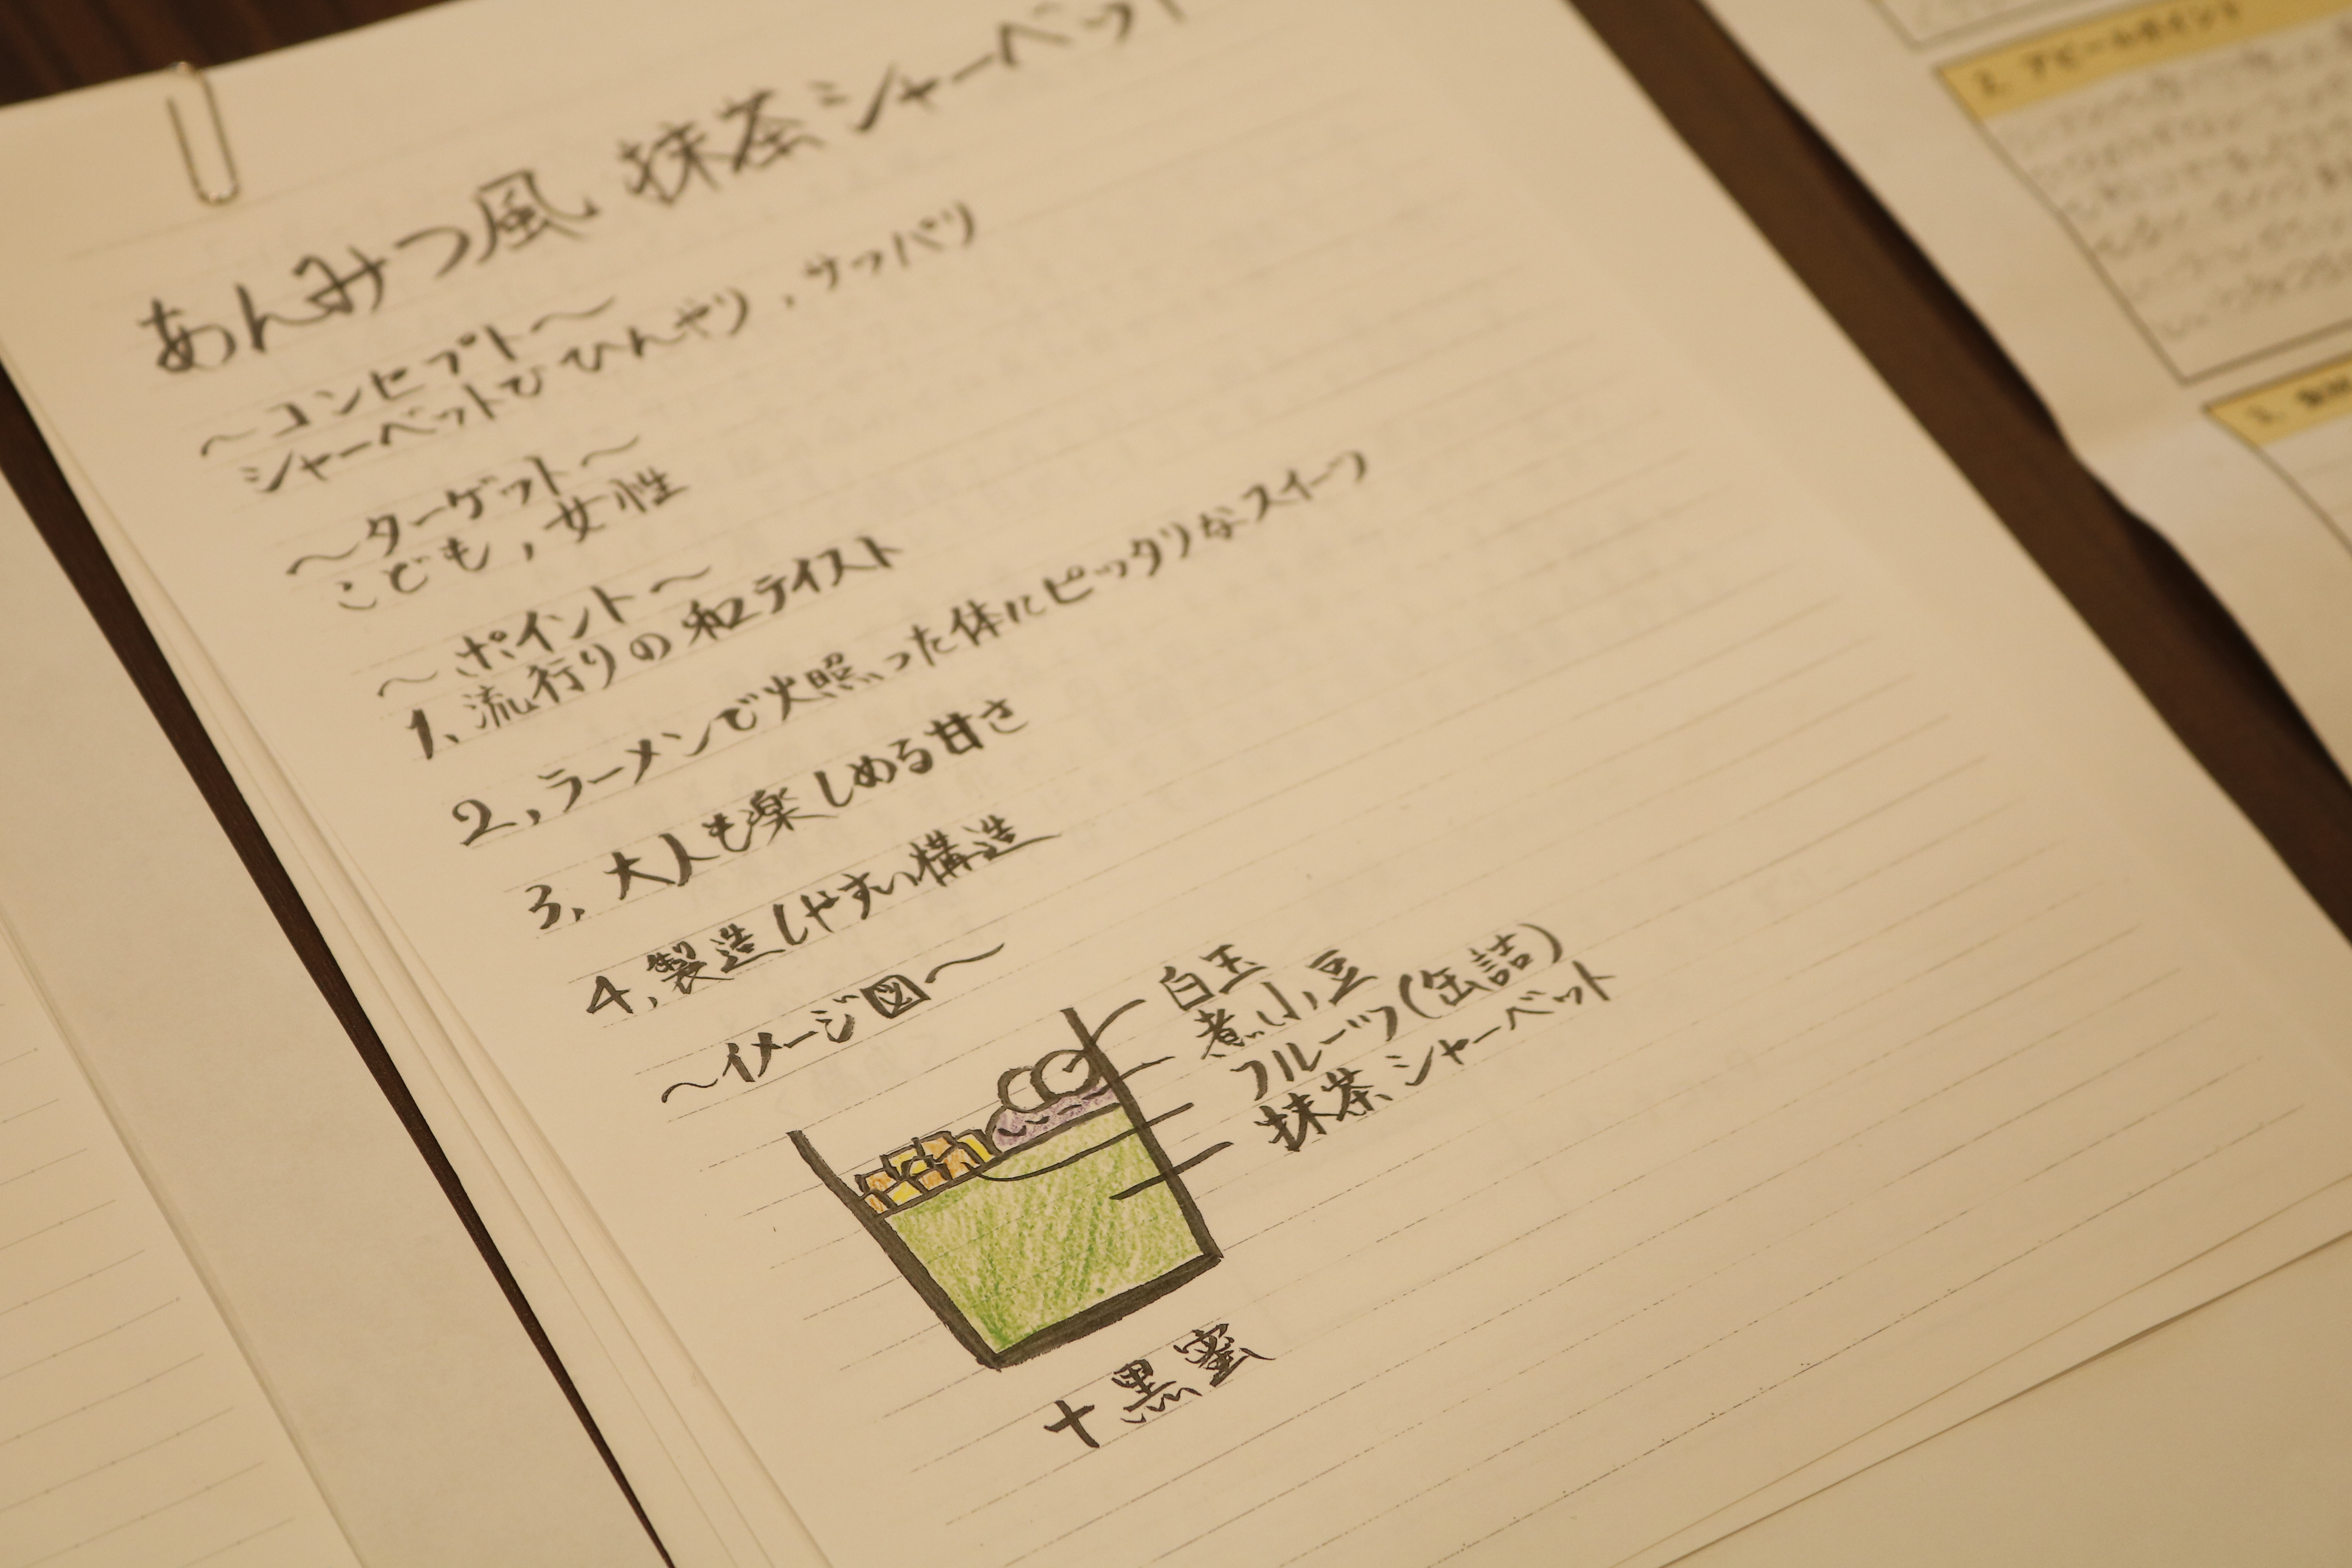 あんみつ風 抹茶シャーベット
～コンセプト～
シャーベットでひんやり，サッパリ
～ターゲット～
こども，女性
～ポイント～
1、流行りの和テイスト
2，ラーメンで火照った体にピッタリなスイーツ
3、大人も楽しめる甘さ
4，製造しやすい構造
～イメージ図～
白玉
煮小豆
フルーツ(缶詰)
抹茶シャーベット
+黒蜜
2. アピールポイント
3.